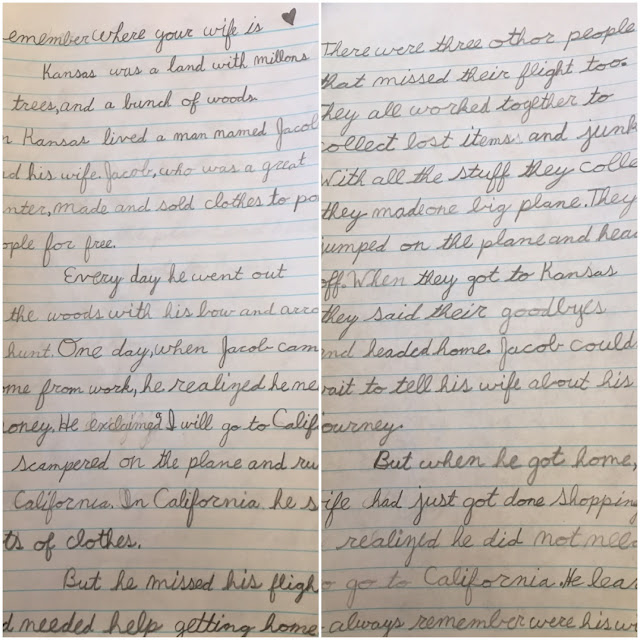 emember where your wife is
Kansas was a land with millons
trees, and a bunch of woods.
n Kansas lived a man named Jacob
nd his wife. Jacob, who was a great
nter, made and sold clothes to po
ople for free.
Every day he went out
the woods with his bow and arro
hunt. One day, when Jacob cam
ome from work, he realized he ne
oney. He exclaimed I will go to Calif
scampered on the plane and ru
California. In California he s
ts of clothes.
But he missed his fligh
d needed help getting home
There were three othor people
that missed their flight too.
hey all worked together to
ollect lost items and junk
With all the stuff they colle
they made one big plane. They
umped on the plane and head
off. When they got to Kansas
they said their goodbyes
and headed home. Jacob could
wait to tell his wife about his
ourney.
But when he got home,
ife had just got done shopping
realized he did not need
o go to California. He lear
always remember were his wi